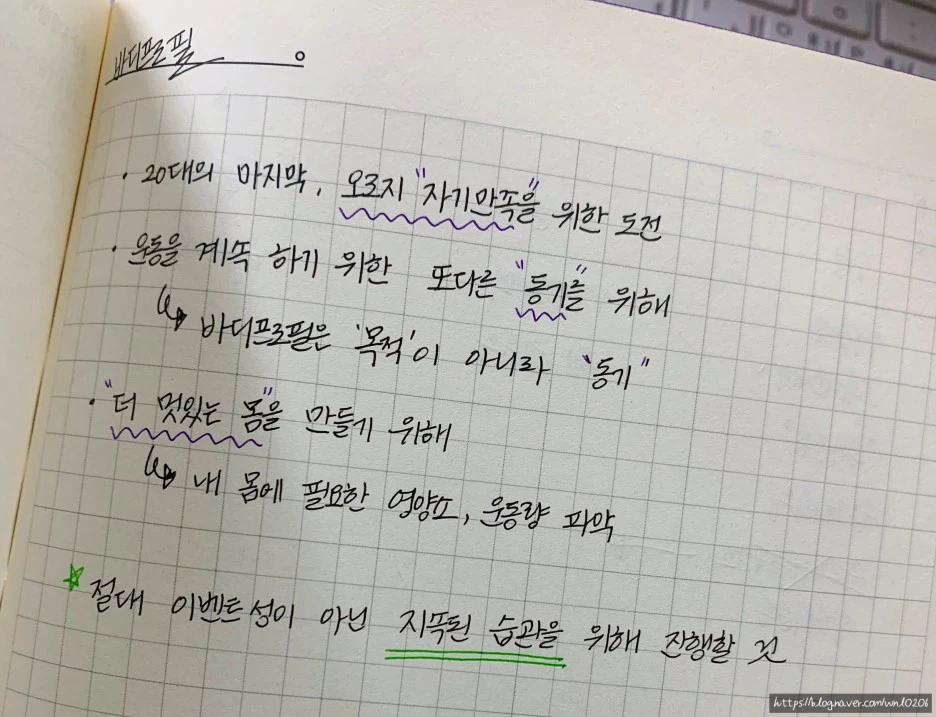 바디프로필
· 20대의 마지막, 오로지 "자기만족"을 위한 도전
· 운동을 계속 하기 위한 또다른 "동기"를 위해
↳ 바디프로필은 '목적'이 아니라 "동기"
· "더 멋있는 몸"을 만들기 위해
↳ 내 몸에 필요한 영양소, 운동량 파악
☆ 절대 이벤트성이 아닌 지푹된 습관을 위해 진행할 것